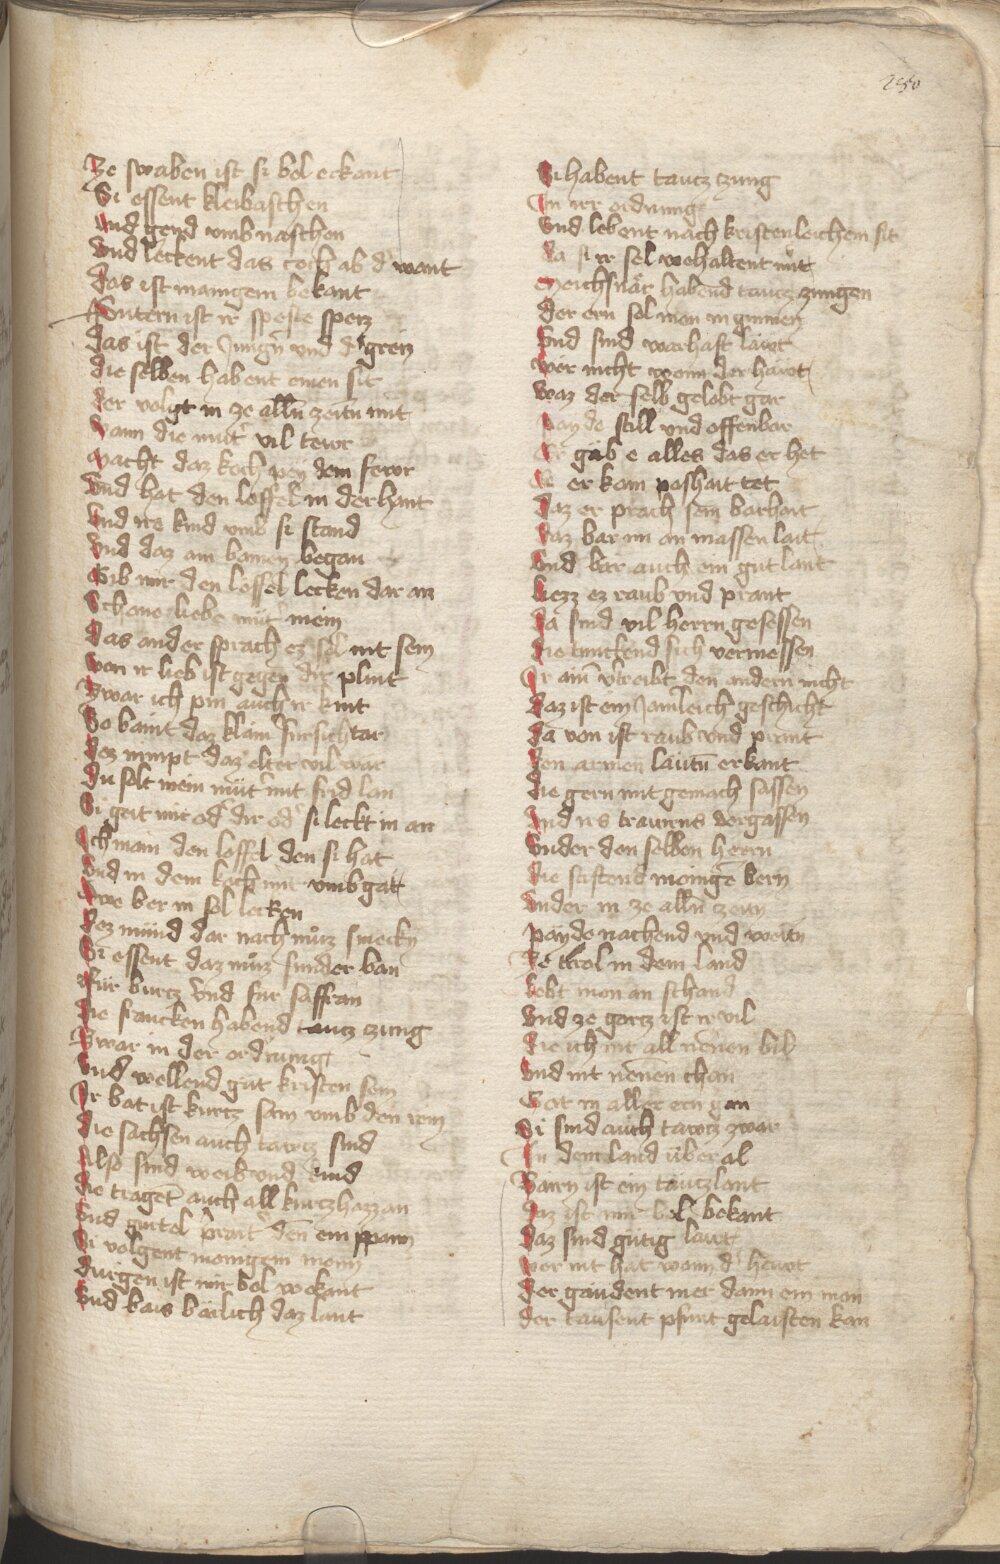 250
Ze swaben ist si bol erkant
Si essent kleibaschen
Und gend vmb naschen
Vnd leckent das coch ab d want
Das ist manigem bekant
Suntern ist ir speise sperz
Das ist der Jungn vnd d gren
Die selben habent einen sit
Der volgt in ze alln zeitn mit
Wann die mut vil tewr
Macht daz koch pey dem fewr
Vnd hat den loffel in der hant
Vnd ire kind vmb si stand
Vnd daz ain bainen began
Gib mir den loffel lecken dar an
Schone liebe mut mein
Das ander sprach ez sol nit sein
Von ir lieb ist gegen dir plint
Zwar ich pin auch ir kint
So baint daz klain fursichtar
Dez nimpt daz elter vil war
Du solt mein mut mit frid lan
Si geit mir od dir od si leckt in an
Ich main den loffel den si hat
Vnd in dem koch mit vmb gat
Awe ber in sol lecken
Dez mund dar nach muz smeckn
Si essent daz muz sunder ban
Für burcz vnd für saffran
Die francken habend tautz zung
Zwar in der ordnung
Vnd wellend gut kristen sein
Ir bat ist kurtz sam vmb den rein
Die sachsen auch tawtz sind
Also sind weib vnd kind
Die tragent auch all kurtz hazzan
Vnd gurtel prait den ein spann
Si volgent manigem mann
Durgen ist mir bol wekant
Vnd hais bärlich daz lant
Si habent tautz zung
In irr ordnung
Vnd lebent nach kristenleichem sit
Da si ir sel wehaltent mit
Meichsnär habend tautz zungen
Der ern sol man in gunnen
Vnd sind warhaft läwt
Wer nicht wenn der hawt
Waz der selb gelobt gar
Payde still vnd offenbar
Er gäb e alles das er het
Ee er kain poshait tet
Daz er prach sein barhait
Daz bar im an massen lait
Vnd bar auch ein gut lant
Liezz ez raub vnd prant
Da sind vil herrn gesessen
Die dunckend sich vermessen
Ir ain vtreibt den andern nicht
Daz ist ein Jamleich geschicht
Da von ist raub vnd prant
Den armen lautn erbant
Die gern mit gemach sassen
Vnd irs trawrens vergassen
Vnder den selben herrn
Die stiftend manige bern
Vnder in ze alln zeitn
Payde nachend vnd weitn
Ze tirol in dem land
Lebt man an schand
Vnd ze gortz ist ir vil
Die ich nit all nennen bil
Vnd nit nennen chan
Got in aller ern gan
Si sind auch tawtz zwar
In dem land über al
Bairn ist ein tautz lant
Daz ist mir bol bekant
Daz sind gütig läut
Wer nit hat wann d hawt
Der gäudent mer dann ein man
Der tausent pfunt gelaisten kan